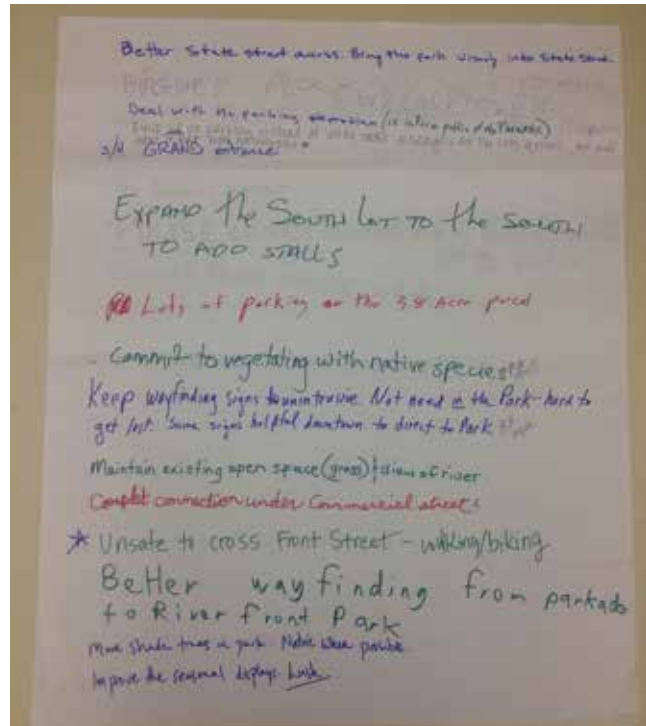 Better State street access. Bring the park visually into State Street.
Deal with the parking
s/d GRAND entrance
EXPAND the SOUTH LOT TO the SOUTH
TO ADD STALLS
Lots of parking on the 3.8 Acre parcel
Commit to vegetating with native species
Keep wayfinding signs to unintrusive. Not need in the Park - hard to
get lost. Some signs helpful downtown to direct to Park
Maintain existing open space (grass) & views of river
Complet connection under Commercial street
* Unsafe to cross Front Street - walking/biking
Better way finding from parkade
to River front Park
More shade trees in park. Native where possible
Improve the seasonal displays